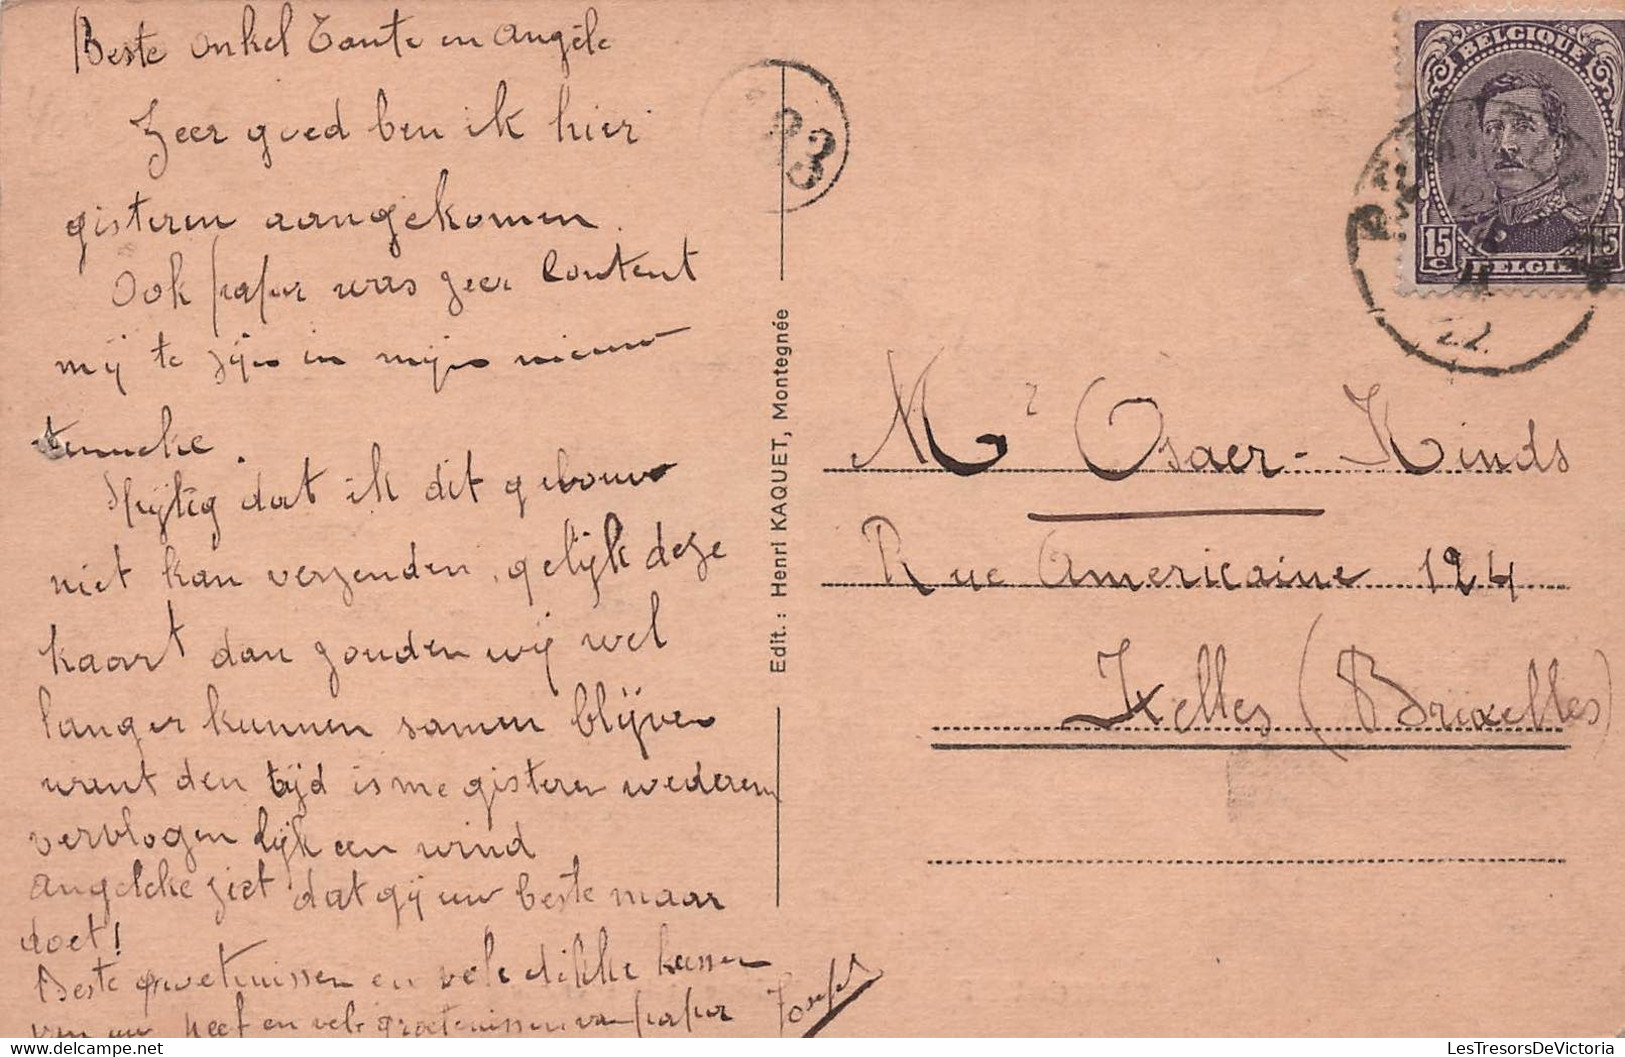 Beste Onkel Tante en Angèle
Zeer goed ben ik hier
gisteren aangekomen.
Ook papa was zeer content
mij te zijn in mijn nieuw
Spijtig dat ik dit gebouw
niet kan verzenden, gelijk deze
kaart dan zouden wij wel
langer kunnen samen blijven
want den tijd is me gisteren wederom
vervlogen lijk een wind
Angeleke ziet dat gij uw beste maar
doet!
Beste groetenissen en vele dikke kussen
van uw neef en vele groetenissen van papa Joseph
33
Edit.: Henri KAQUET, Montegnée
BELGIQUE
15 c
15
BELGIE
22
Mr Osaer-Kinds
Rue Americaine 124
Ixelles (Bruxelles)
LesTresorsDeVictoria